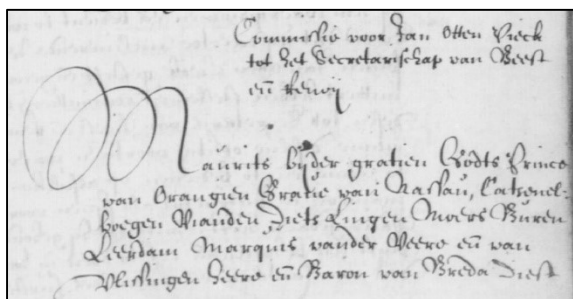 Commissie voor Jan Otten Vieck
tot het Secretarischap van Beest
en̄ Renoij
Maurits bijder gratien Godts Prince
van Orangien Graue van Nassau, Catzenel-
boegen Vianden Diets Lingen Moers Buren
Leerdam Marquis vander Veere en̄ van
Vlissingen Heere en̄ Baron van Breda Diest